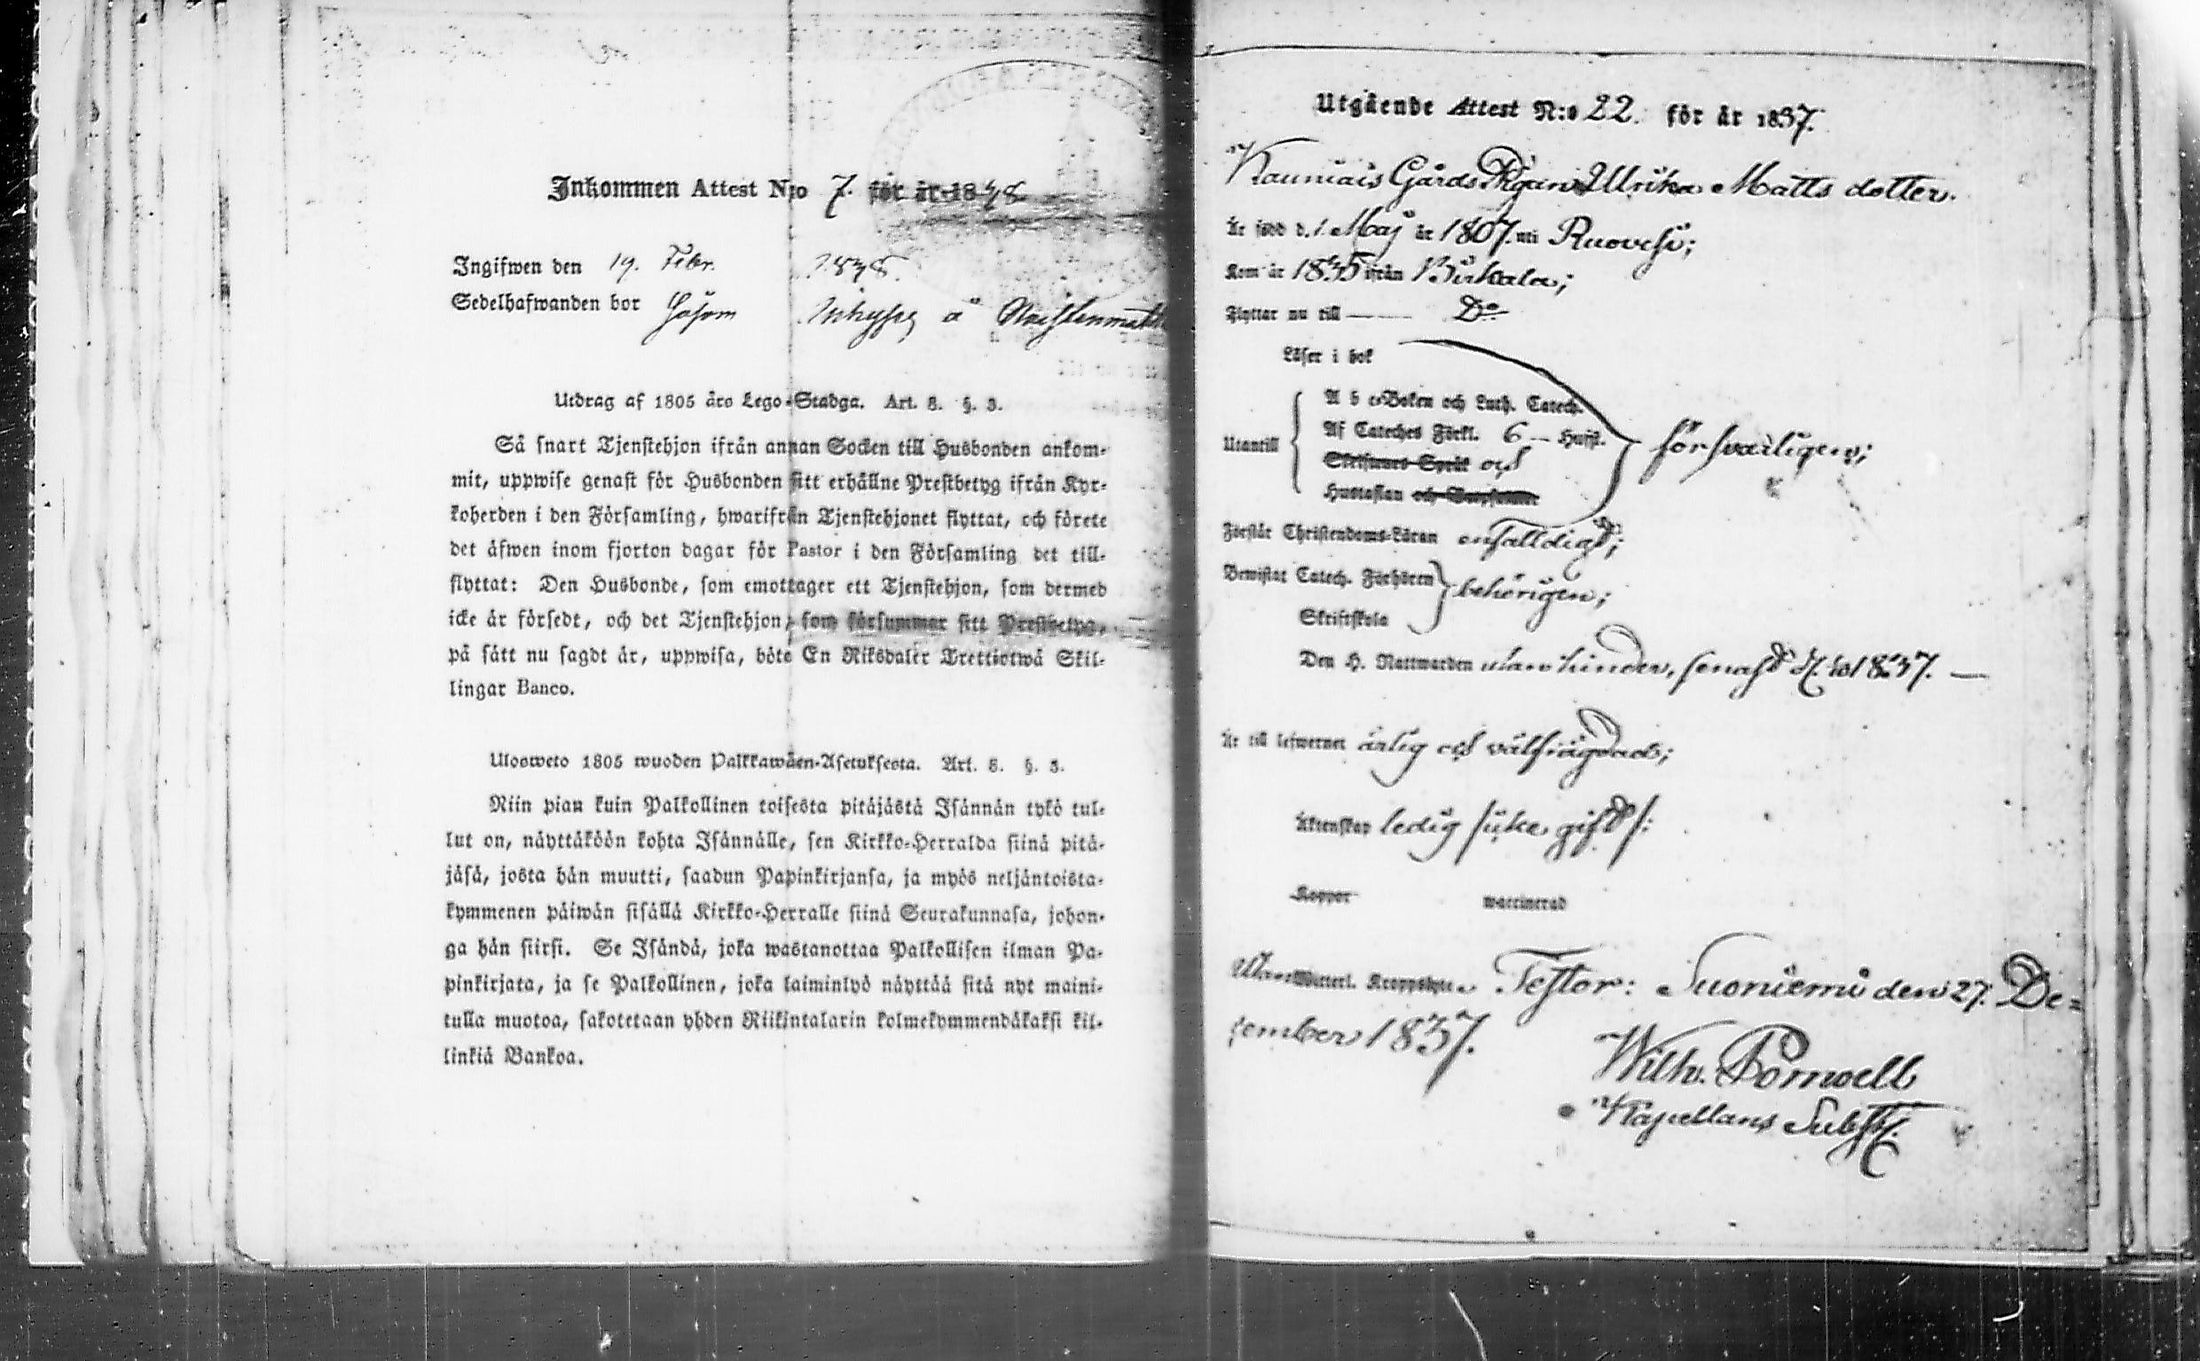 Inkommen Attest N:o 7. för år 1838
Ingifwen den 19. Febr. 1838.
Sedelhafwanden bor såsom Inhyses å
Utdrag af 1805 års Lego-Stadga. Art. 8. §. 3.
Så snart Tjenstehjon ifrån annan Socken till Husbonden ankom-
mit, uppwise genast för Husbonden sitt erhållne Prestbetyg ifrån Kyr-
koherden i den Församling, hwarifrån Tjenstehjonet flyttat, och förete
det äfwen inom fjorton dagar för Pastor i den Församling det till-
flyttat: Den Husbonde, som emottager ett Tjenstehjon, som dermed
icke är försedt, och det Tjenstehjon, som försummar sitt Prestbetyg,
på sätt nu sagdt är, uppwisa, böte En Riksdaler Trettiotwå Skil-
lingar Banco.
Ulosweto 1805 wuoden Palkkawäen-Asetuksesta. Art. 8. §. 3.
Niin pian kuin Palkollinen toisesta pitäjästä Isännän tykö tul-
lut on, näyttäköön kohta Isännälle, sen Kirkko-Herralda siinä pitä-
jäsä, josta hän muutti, saadun Papinkirjansa, ja myös neljäntoista-
kymmenen päiwän sisällä Kirkko-Herralle siinä Seurakunnasa, johon-
ga hän siirsi. Se Isändä, joka wastanottaa Palkollisen ilman Pa-
pinkirjata, ja se Palkollinen, joka laiminlyö näyttää sitä nyt maini-
tulla muotoa, sakotetaan yhden Riikintalarin kolmekymmendäkaksi kil-
linkiä Bankoa.
Utgående Attest N:o 22. för år 1837.
Kauniais Gårds Pigan Ulrika Matts dotter.
Är född d. 1 Maj år 1807. uti Ruovesi;
Kom år 1835 ifrån Birkala;
Flyttar nu till —— Do
Läser i bok
Utantill
A b c-Boken och Luth. Catech.
Af Cateches Förkl. 6 – Hufst.
Skriftenes Språk och
Hustaflan och
försvarligen;
Förstår Christendoms-Läran enfalldigt;
Bewistat Catech. Förhören
Skriftskola
behörigen;
Den H. Nattwarden utan hinder, senast 1837. —
Är till lefwernet ärlig och välfrägdad;
Äktenskap ledig /icke gift/:
Koppor waccinerad
Utan Witterl. Kroppslyte. Testor: Suoniemi den 27. De=
cember 1837.
Wilh. Pomoell
Kapellans Subst.